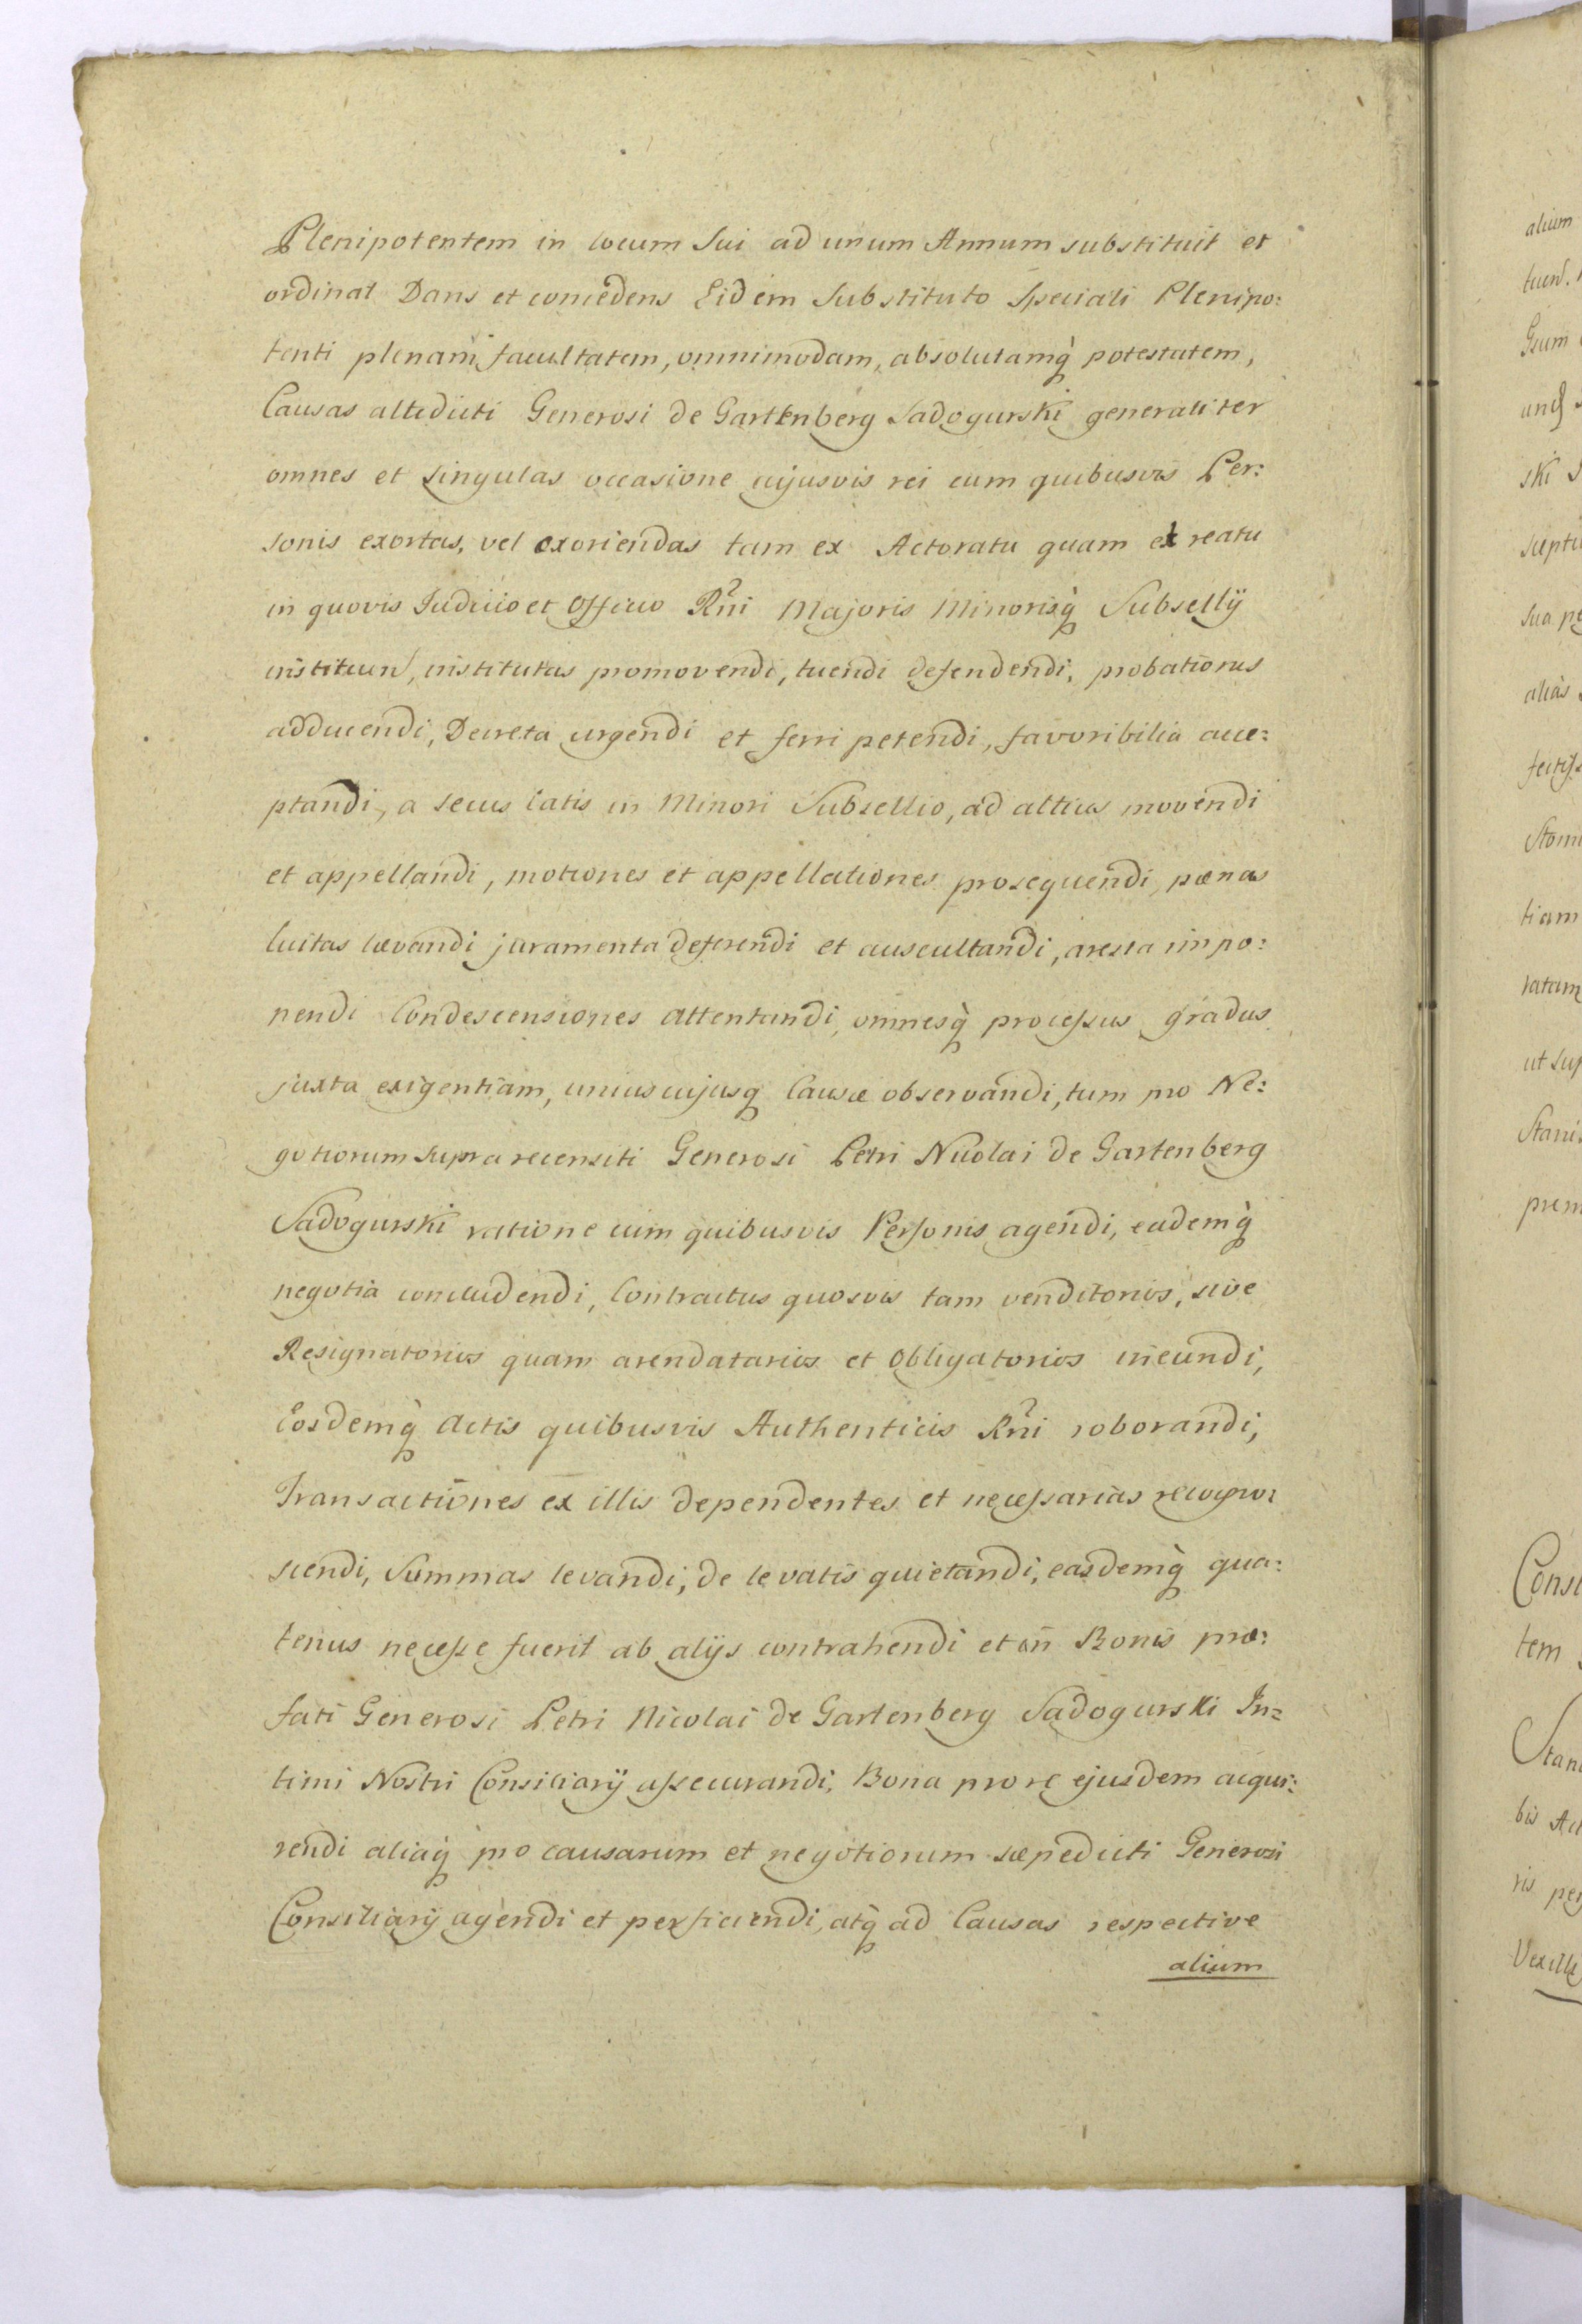 Plenipotentem in locum Sui ad unum Annum substituit et
ordinat Dans et concedens Eidem Substituto Speciali Plenipo:
tenti plenam facultatem, omnimodam, absolutamq̀ potestatem,
Causas altedicti Generosi de Gartenberg Sadogurski generaliter
omnes et singulas occasione cujusvis rei cum quibusvis Per:
sonis exortas, vel exoriendas tam ex Actoratu quam ex reatu
in quovis Judicio et Officio Rñi Majoris Minorisq̀ Subsellÿ
instituen, institutas promovendi, tuendi defendendi, probationes
adducendi, Decreta urgendi et ferri petendi, favoribilia acce:
ptandi, a secus latis in Minori Subsellio, ad altius movendi
et appellandi, motiones et appellationes prosequendi, pœnas
luitas lævandi juramenta deferendi et auscultandi, aresta impo:
nendi Condescensiones attentandi, omnesq̀ processus gradus
juxta exigentiam, uniuscujusq Causæ observandi, tum pro Ne:
gotiorum supra recensiti Generosi Petri Nicolai de Gartenberg
Sadogurski ratione cum quibusvis Personis agendi, eademq̀
negotia concludendi, Contractus quosvis tam venditorios, sive
Resignatorios quam arendatarios et Obligatorios ineundi,
Eosdemq̀ Actis quibusvis Authenticis Rñi roborandi,
Transactiones ex illis dependentes et necessarias recogno:
scendi, Summas levandi, de levatis quietandi, easdemq̀ qua:
tenus necesse fuerit ab alÿs contrahendi et in Bonis præ:
fati Generosi Petri Nicolai de Gartenberg Sadogurski In:
timi Nostri Consiliarÿ assecurandi, Bona pro re ejusdem acqui:
rendi aliaq̀ pro causarum et negotiorum sæpedicti Generosi
Consiliarÿ agendi et perficiendi, atq̀ ad Causas respective
alium
alium
ski
sua
alias
tiam
ut
tem
bis
ris